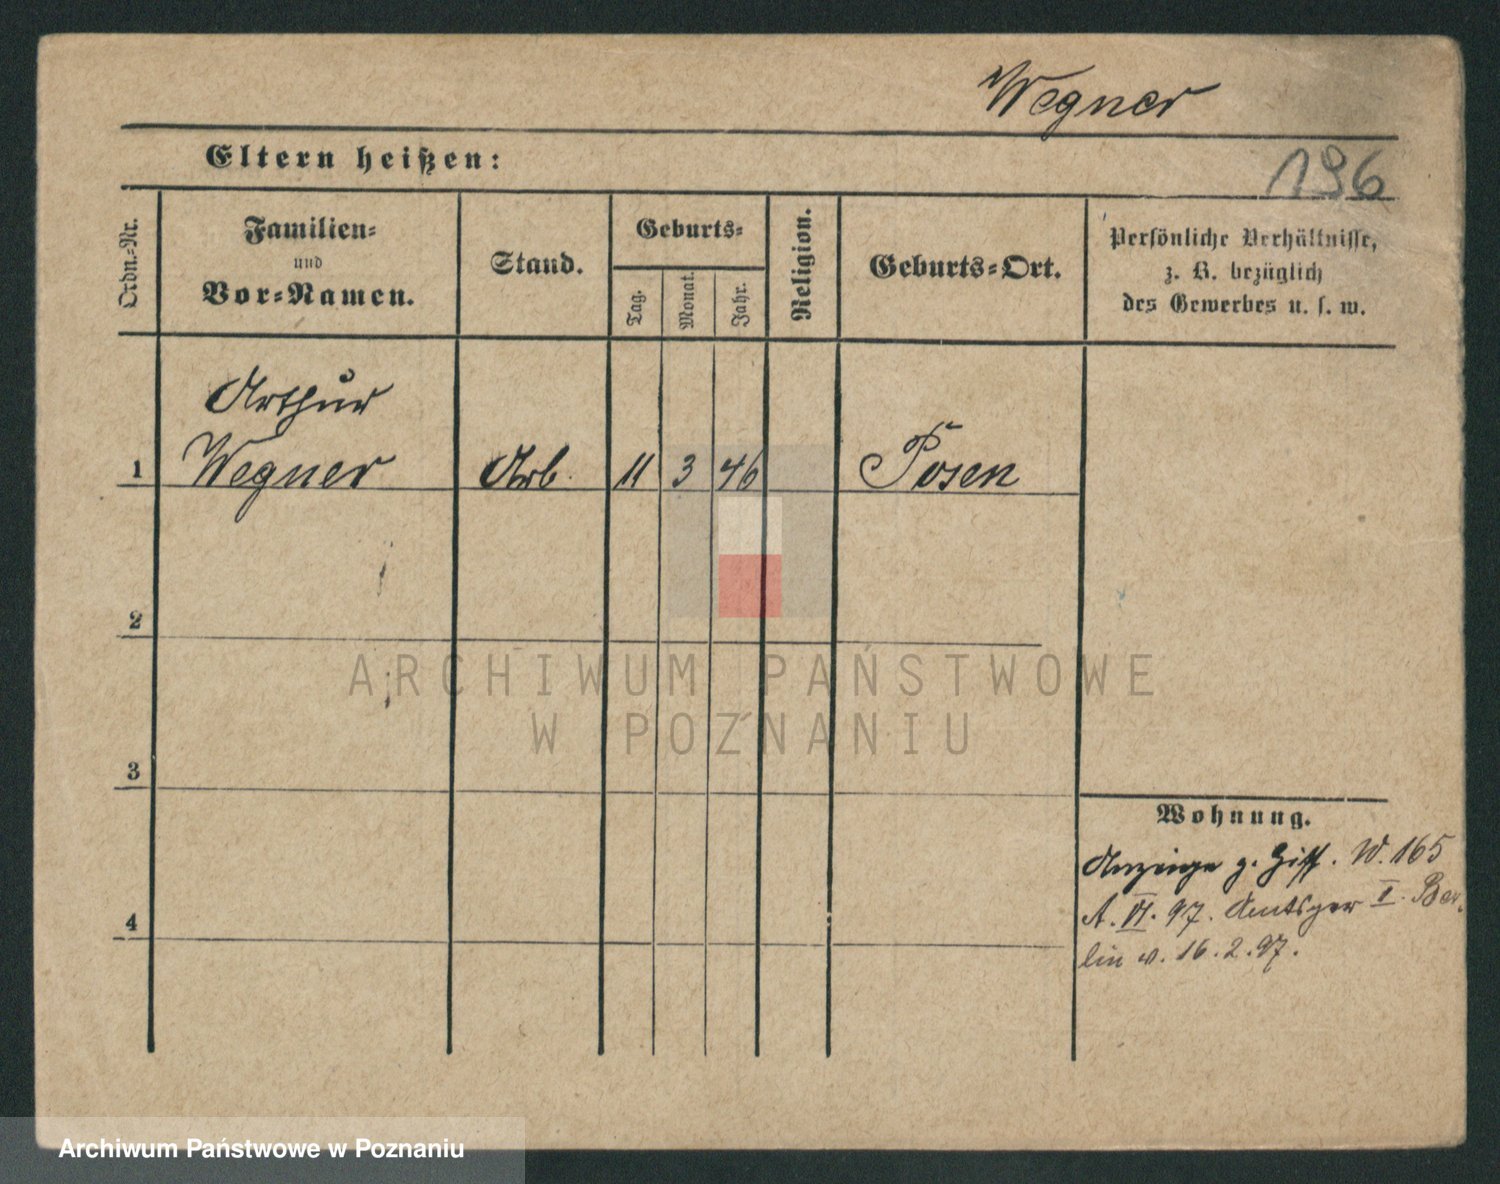 Wegner
Eltern heißen:
196
Ordn.-Nr.
Familien-
und
Vor-Namen.
Stand.
Geburts-
Tag.
Monat.
Jahr.
Religion.
Geburts-Ort.
Persönliche Verhältnisse,
z. B. bezüglich
des Gewerbes u. s. w.
Arthur
1 Wegner Arb. 11 3 46 Posen
2
ARCHIWUM PAŃSTWOWE
W POZNANIU
3
Wohnung.
Anzeige z. W. 165
A. VI. 97. Amtsger II. Ber
4
lin v. 16.2.97.
Archiwum Państwowe w Poznaniu